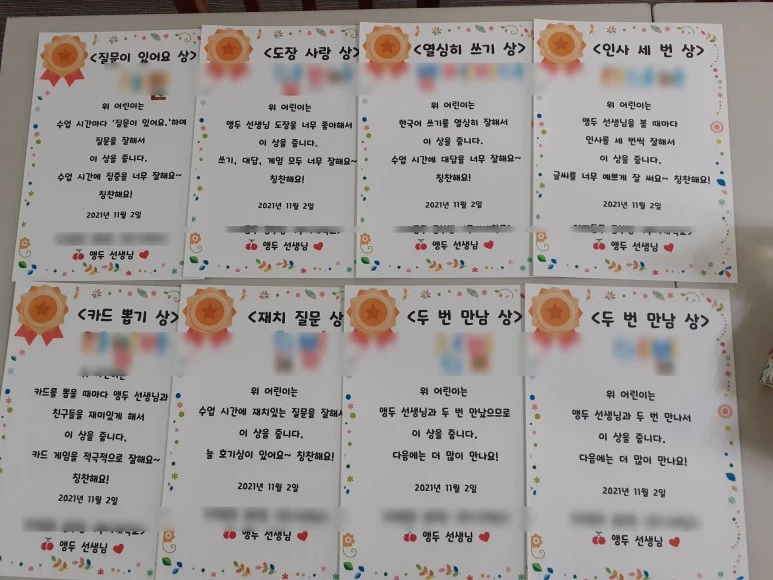 <질문이 있어요 상>
위 어린이는
수업 시간마다 '질문이 있어요.'하며
질문을 잘해서
이 상을 줍니다.
수업 시간에 집중을 너무 잘해요~
칭찬해요!
2021년 11월 2일
앵두 선생님
<도장 사랑 상>
위 어린이는
앵두 선생님 도장을 너무 좋아해서
이 상을 줍니다.
쓰기, 대답, 게임 모두 너무 잘해요~
칭찬해요!
2021년 11월 2일
앵두 선생님
<열심히 쓰기 상>
위 어린이는
한국어 쓰기를 열심히 잘해서
이 상을 줍니다.
수업 시간에 대답을 너무 잘해요~
칭찬해요!
2021년 11월 2일
앵두 선생님
<인사 세 번 상>
위 어린이는
앵두 선생님을 볼 때마다
인사를 세 번씩 잘해서
이 상을 줍니다.
글씨를 너무 예쁘게 잘 써요~ 칭찬해요!
2021년 11월 2일
앵두 선생님
<카드 뽑기 상>
위 어린이는
카드를 뽑을 때마다 앵두 선생님과
친구들을 재미있게 해서
이 상을 줍니다.
카드 게임을 적극적으로 잘해요~
칭찬해요!
2021년 11월 2일
앵두 선생님
<재치 질문 상
위 어린이는
수업 시간에 재치있는 질문을 잘해서
이 상을 줍니다.
늘 호기심이 있어요~ 칭찬해요!
2021년 11월 2일
앵두 선생님
<두 번 만남 상>
위 어린이는
앵두 선생님과 두 번 만났으므로
이 상을 줍니다.
다음에는 더 많이 만나요!
2021년 11월 2일
앵두 선생님
<두 번 만남 상>
위 어린이는
앵두 선생님과 두 번 만나서
이 상을 줍니다.
다음에는 더 많이 만나요!
2021년 11월 2일
앵두 선생님